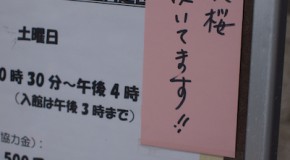 土曜日
0時30分～午後4時
(入館は午後3時まで)
協力金):
500
桜
いてます!!